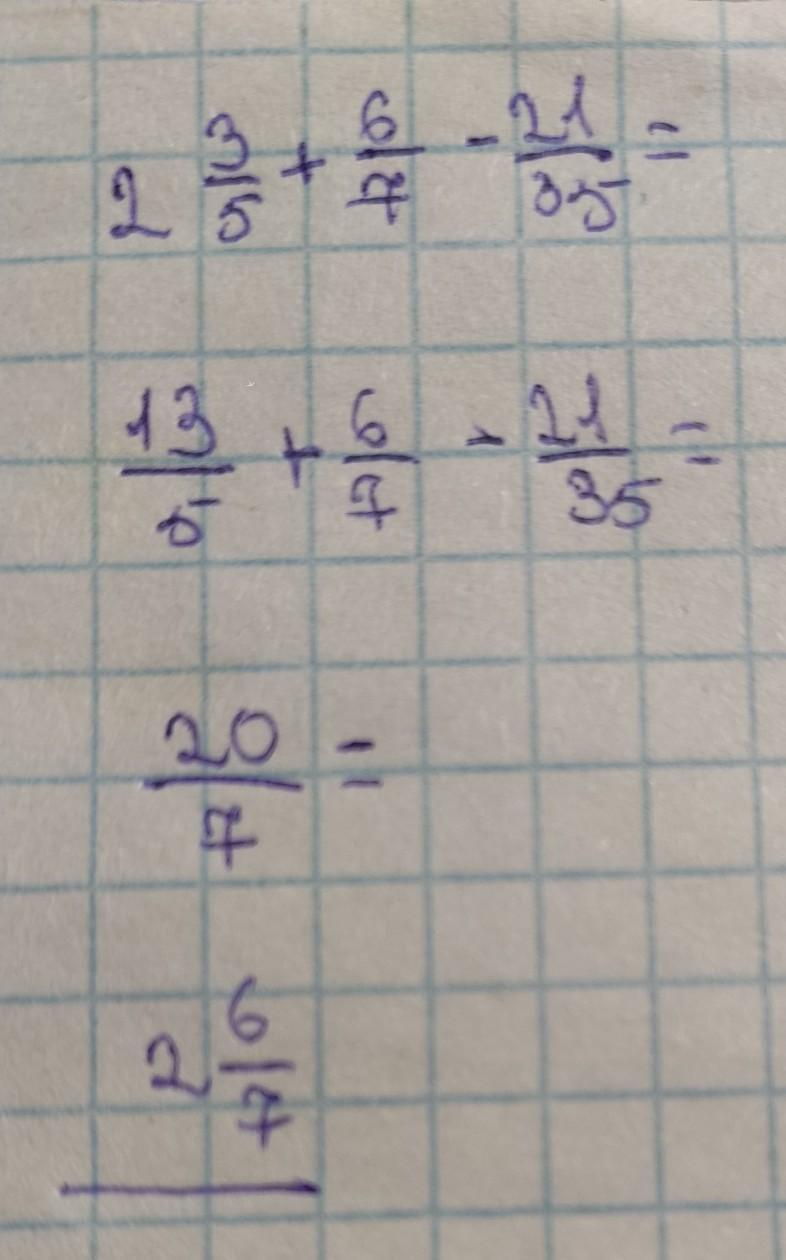 2 3/5 + 6/7 - 21/35 =
13/5 + 6/7 - 21/35 =
20/7 =
2 6/7